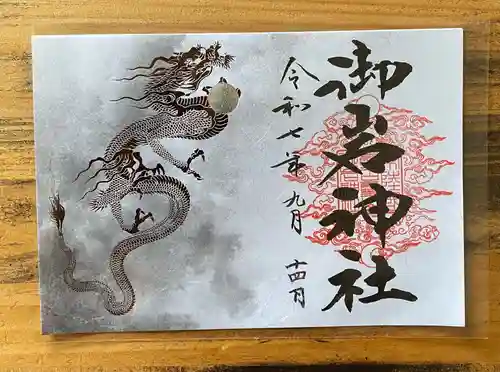 御岩神社
令和七年九月
十四日